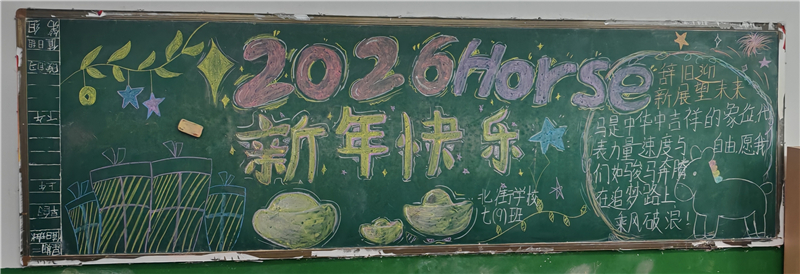 2026Horse
新年快乐
北街学校
七(9)班
辞旧迎
新展望未来
马是中华中吉祥的象征代
表力量速度与自由愿我
们如骏马奔腾
在追梦路上
乘风破浪!